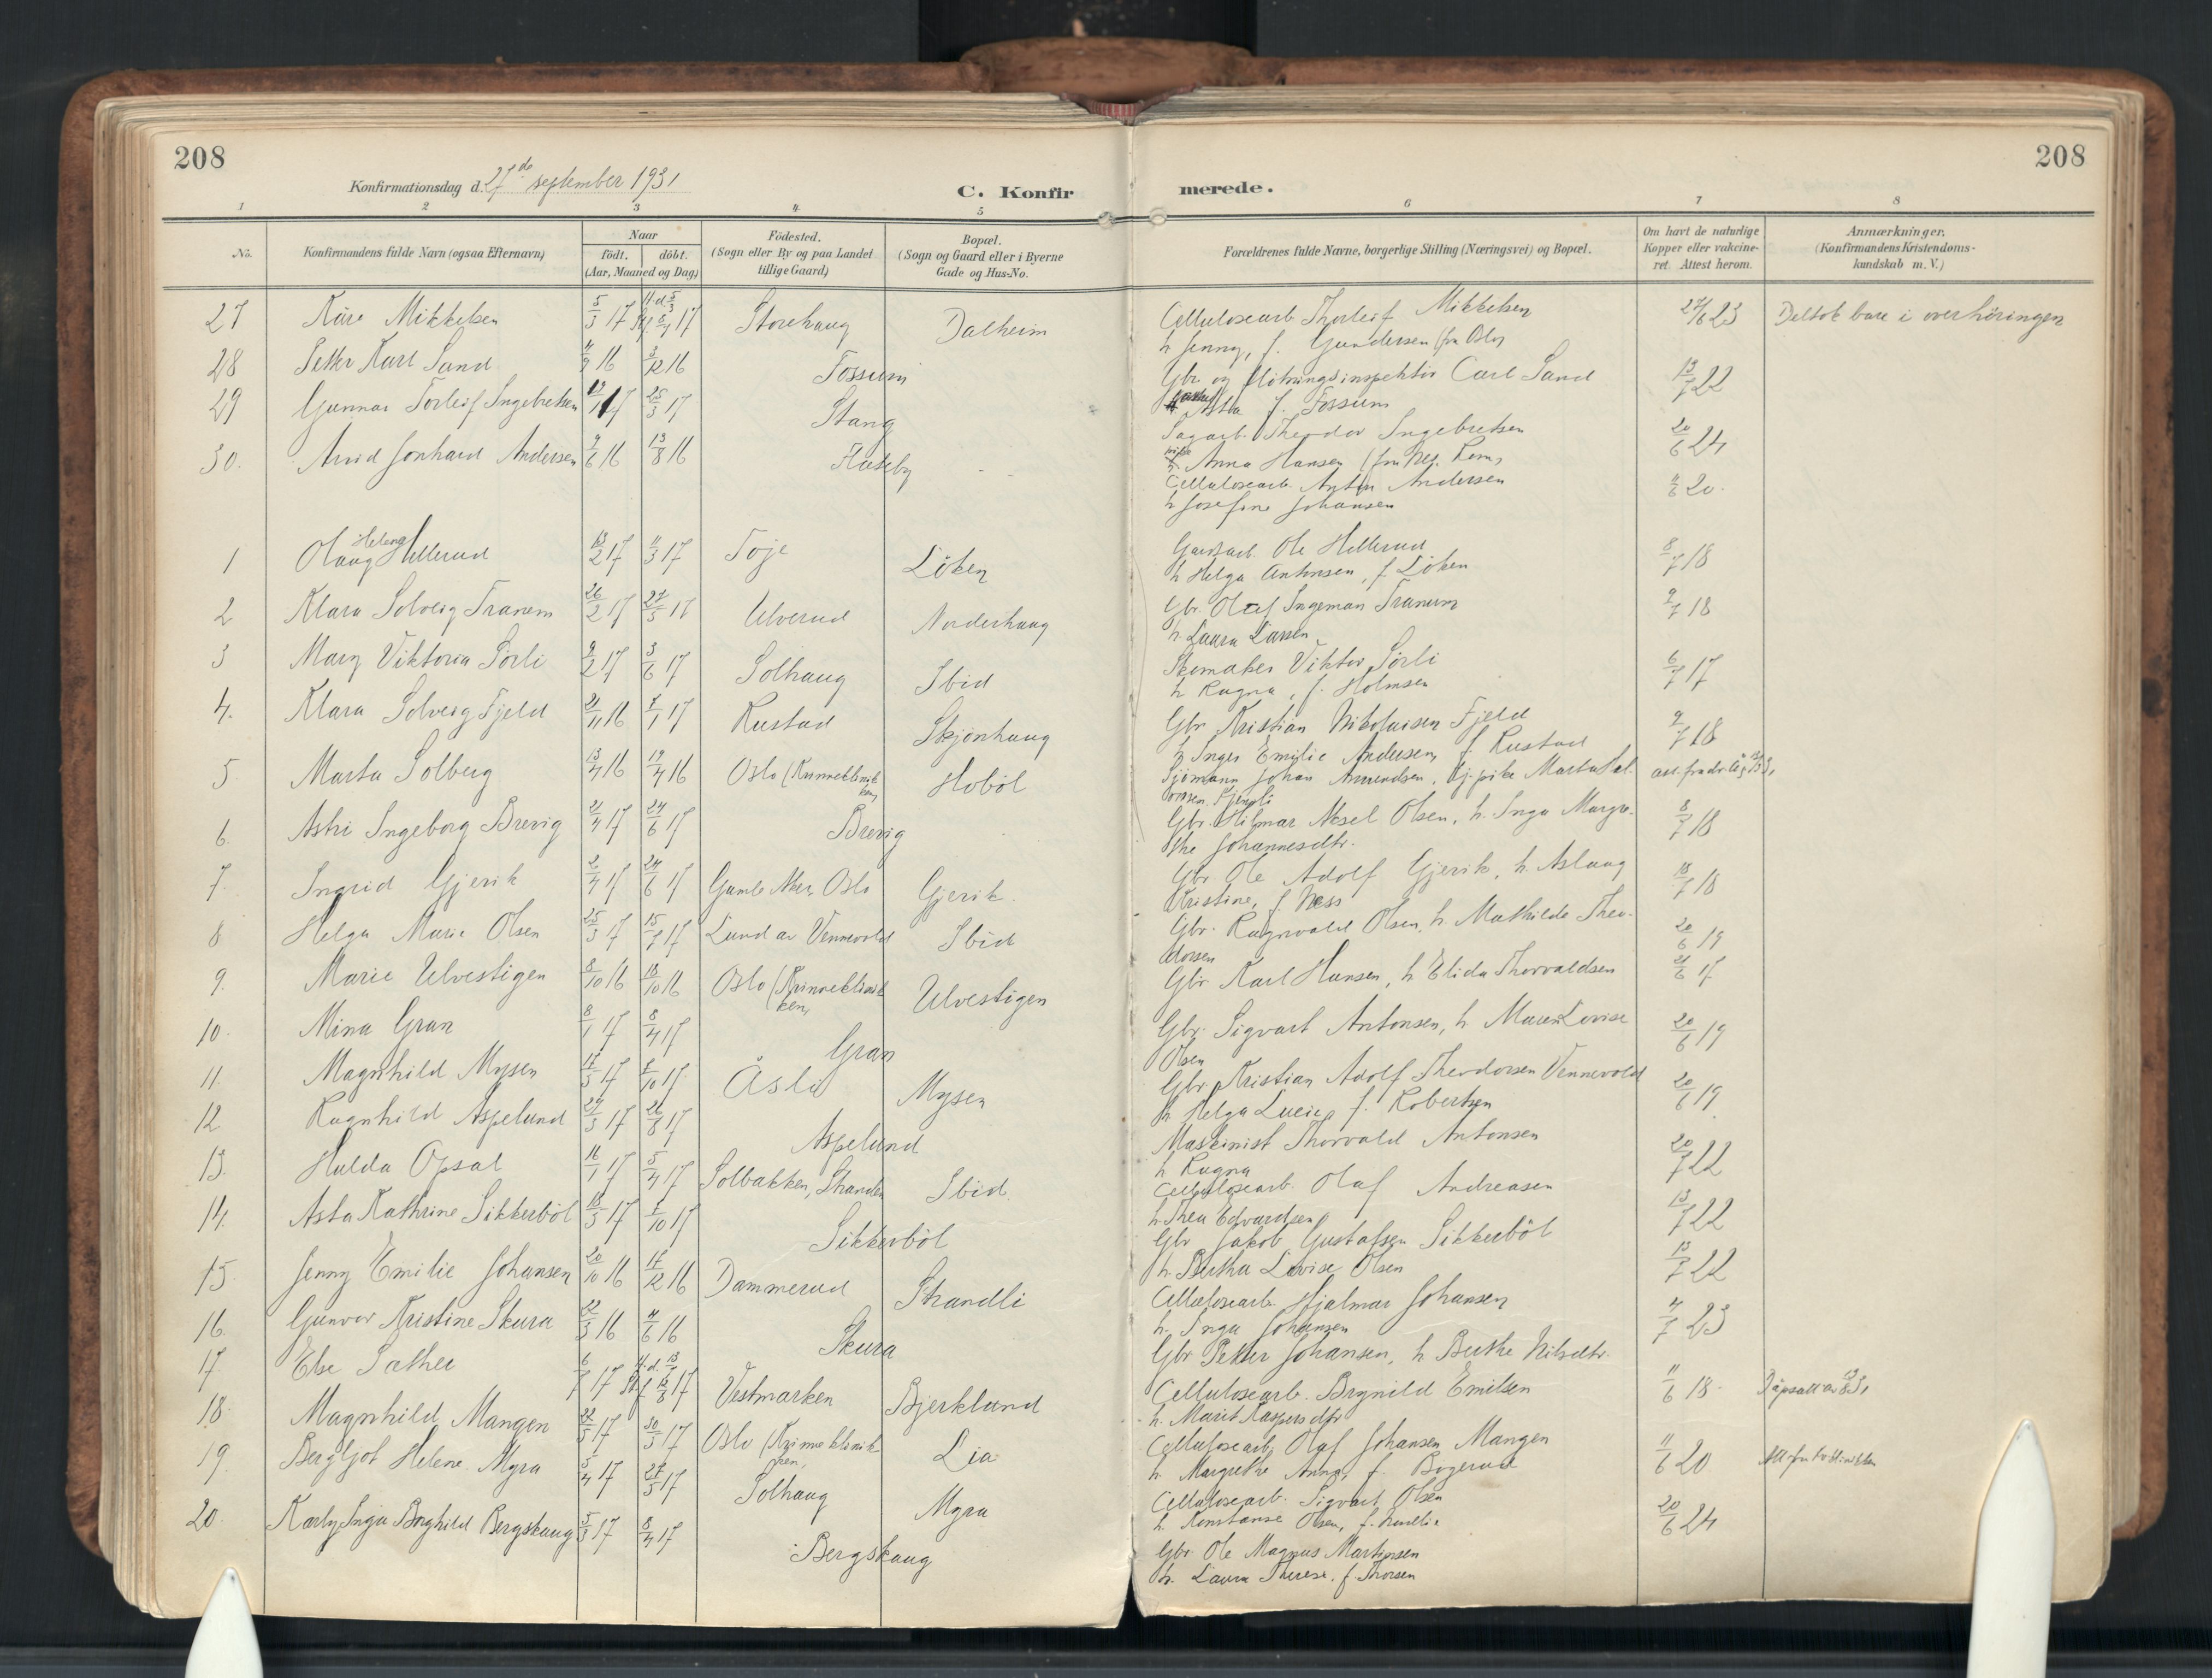 208
208
Konfirmationsdag d. 27de september 1931
C. Konfirmerede.
1 2 3 4 5 6 7 8
No.
Konfirmandens fulde Navn (ogsaa Efternavn)
Naar
födt. döbt.
(Aar, Maaned og Dag)
Födested.
(Sogn eller By og paa Landet
tillige Gaard)
Bopæl.
(Sogn og Gaard eller i Byerne
Gade og Hus-No.
Forældrenes fulde Navne, borgerlige Stilling (Næringsvei) og Bopæl.
Om havt de naturlige
Kopper eller vakcine-
ret. Attest herom.
Anmærkninger.
(Konfirmandens Kristendoms-
kundskab m. V.)
27 Kåre Mikkelsen 5/3 17 Storehaug Dalheim Cellulosearb. Thorleif Mikkelsen 27/6 23 Deltok bare i overhöringen
h. Jenny, f. Gundersen (fra Oslo)
28 Petter Karl Sand 4/9 16 3/12 16 Fossum Gbr. og flötningsinspektör Carl Sand 13/7 22
Asta f. Fossum
29 Gunnar Torleif Ingebretsen 25/3 17 Stang Sagarb. Theodor Ingebretsen 20/6 24
Anna Hansen
30. Arvid Jonhard Andersen 9/6 16 13/8 16 Haseby Cellulosearb. Anton Andersen 11/6 20.
h. Josefine Johansen
1 Olaug Helene Hellerud 13/2 17 11/3 17 Toje Löken Gardsarb. Ole Hellerud 8/7 18
h. Helga Antonsen, f. Löken
2 Klara Solveig Tranem 26/2 17 27/5 17 Ulverud Nordenhaug Gbr. Olaf Ingeman Tranum 9/7 18
h. Laura Larsen
3 Mary Viktoria Sörli 9/2 17 3/6 17 Solhaug Ibid Skomaker Viktor Sörli 6/7 17
h. Ragna, f. Holmsen
4. Klara Solveig Fjeld 21/11 16 7/1 17 Rustad Skjönhaug Gbr. Kristian Nikolaisen Fjeld 9/7 18
h. Inger Emilie Andersen, f. Rustad
5 Marta Solberg 13/4 16 19/4 16 Oslo (Kvinneklinik
ken) Hoböl Sjömann Johan Amundsen, tj.pike Marta
6. Astri Ingeborg Brevig 21/4 17 24/6 17 Brevig Gbr. Hilmar Aksel Olsen, h. Inga Margre- 8/7 18
the Johannesdtr.
7. Ingrid Gjerik 2/4 17 24/6 17 Gamle Aker, Oslo Gjerik. Gbr. Ole Adolf Gjerik, h. Aslaug 18/7 18
Kristine, f. Ness
8 Helga Marie Olsen 25/3 17 15/7 17 Lund av Vennevold Ibid Gbr. Ragnvald Olsen, h. Mathilde Theo- 20/6 19
dorsen
9. Marie Ulvestigen 8/10 16 18/10 16 Oslo (Kvinneklinik
ken) Ulvestigen Gbr. Karl Hansen, h. Elida Thorvaldsen 21/6 17
10. Mina Gran 8/1 17 8/4 17 Gran Gbr. Sigvart Antonsen, h. Maren Lovise 20/6 19
Olsen
11. Magnhild Mysen 17/5 17 7/10 17 Åsli Mysen Gbr. Kristian Adolf Theodorsen Vennevold 20/6 19
h. Helga Lucie, f. Robertsen
12 Ragnhild Aspelund 27/3 17 26/8 17 Aspelund Maskinist Thorvald Antonsen 20/7 22
h. Ragna
13. Hulda Opsal 16/1 17 5/4 17 Solbakken, Stranden Ibid. Cellulosearb. Olaf Andreasen 13/7 22
h. Thea Edvardsen
14. Asta Kathrine Sikkeböl 18/5 17 7/10 17 Sikkeböl Gbr. Jakob Gustafsen Sikkeböl 13/7 22
h. Bertha Lovise Olsen
15 Jenny Emilie Johansen 20/10 16 17/12 16 Dammerud Strandli Cellulosearb. Hjalmar Johansen 4/7 23
h. Inga Johansen
16. Gunvor Kristine Skura 22/3 16 4/6 16 Skura Gbr. Petter Johansen, h. Berthe Nilsdtr.
17. Else Sæther 6/7 17 Vestmarken Bjerklund Cellulosearb. Brynild Emilsen 11/6 18
h. Marit Kaspersdtr
18. Magnhild Mangen 22/5 17 30/5 17 Oslo (Kvinneklinik-
ken) Lia Cellulosearb. Olaf Johansen Mangen 11/6 20
h. Margrethe Anna, f. Bogerud
19. Bergljot Helene Myra 5/4 17 27/5 17 Solhaug Myra Cellulosearb. Sigvart Olsen 20/6 24
h. Konstanse Olsen, f.
20. Karly Inga Borghild Bergskaug 5/3 17 8/4 17 Bergskaug Gbr. Ole Magnus Martinsen
h. Laura Therese, f. Thorsen